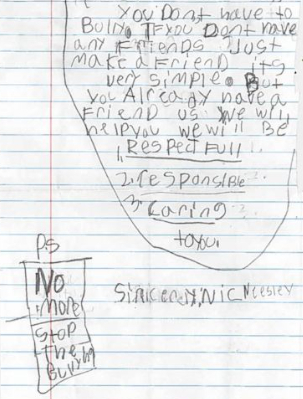 You Dont have to
Bully. If You Dont have
any Friends Just
make a Friend its
very simple. But
you Already have a
Friend us we will
help you we will Be
1, Respectfull
2. responsible
3. Caring
to you.
Ps
No
more
Stop
the
Sincerely, Nic